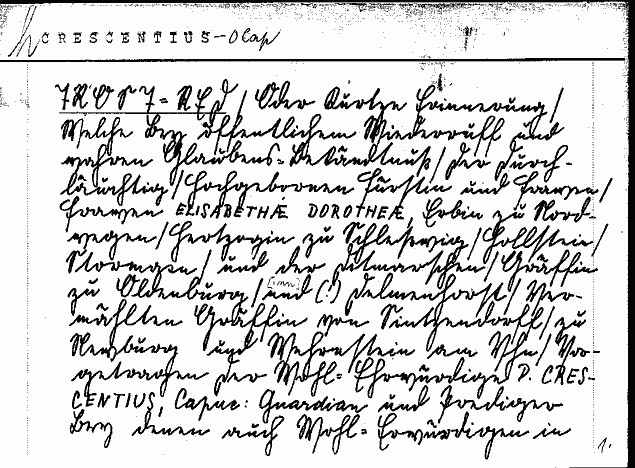 CRESCENTIUS-Olap
TROST=RED / Oder Kurtze Erinnerung /
Welche Bey öffentlichem Wiederruff und
wahren Glaubens=Bekändtnuß / der Durch-
läuchtig / Hochgebornen Fürstin und Frawen /
Frawen ELISABETHÆ DOROTHEÆ, Erbin zu Nord-
wegen / Hertzogin zu Schleßwig / Hollstein /
Stormgen / und der Ditmarschen / Gräffin
zu Oldenburg / und (!) Delmenhorst / Ver-
mählten Gräffin von Sintzendorff / zu
Newburg und Wehrnstein am Yhn / Vor-
getragen Der Wohl=Ehrwürdige P. CRES-
CENTIUS, Capuc: Guardian und Prediger
Bey denen auch Wohl=Erwürdigen in
1.